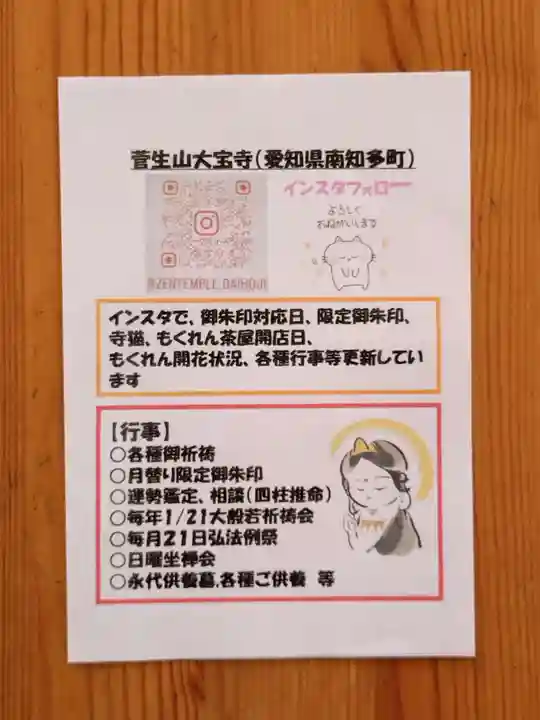 菅生山大宝寺(愛知県南知多町)
インスタフォロー
よろしく
おねがいします
@ZENTEMPLE_DAIHOJI
インスタで、御朱印対応日、限定御朱印、
寺猫、もくれん茶屋開店日、
もくれん開花状況、各種行事等更新してい
ます
【行事】
○各種御祈祷
○月替り限定御朱印
○運勢鑑定、相談(四柱推命)
○毎年1/21大般若祈祷会
○毎月21日弘法例祭
○日曜坐禅会
○永代供養墓、各種ご供養 等